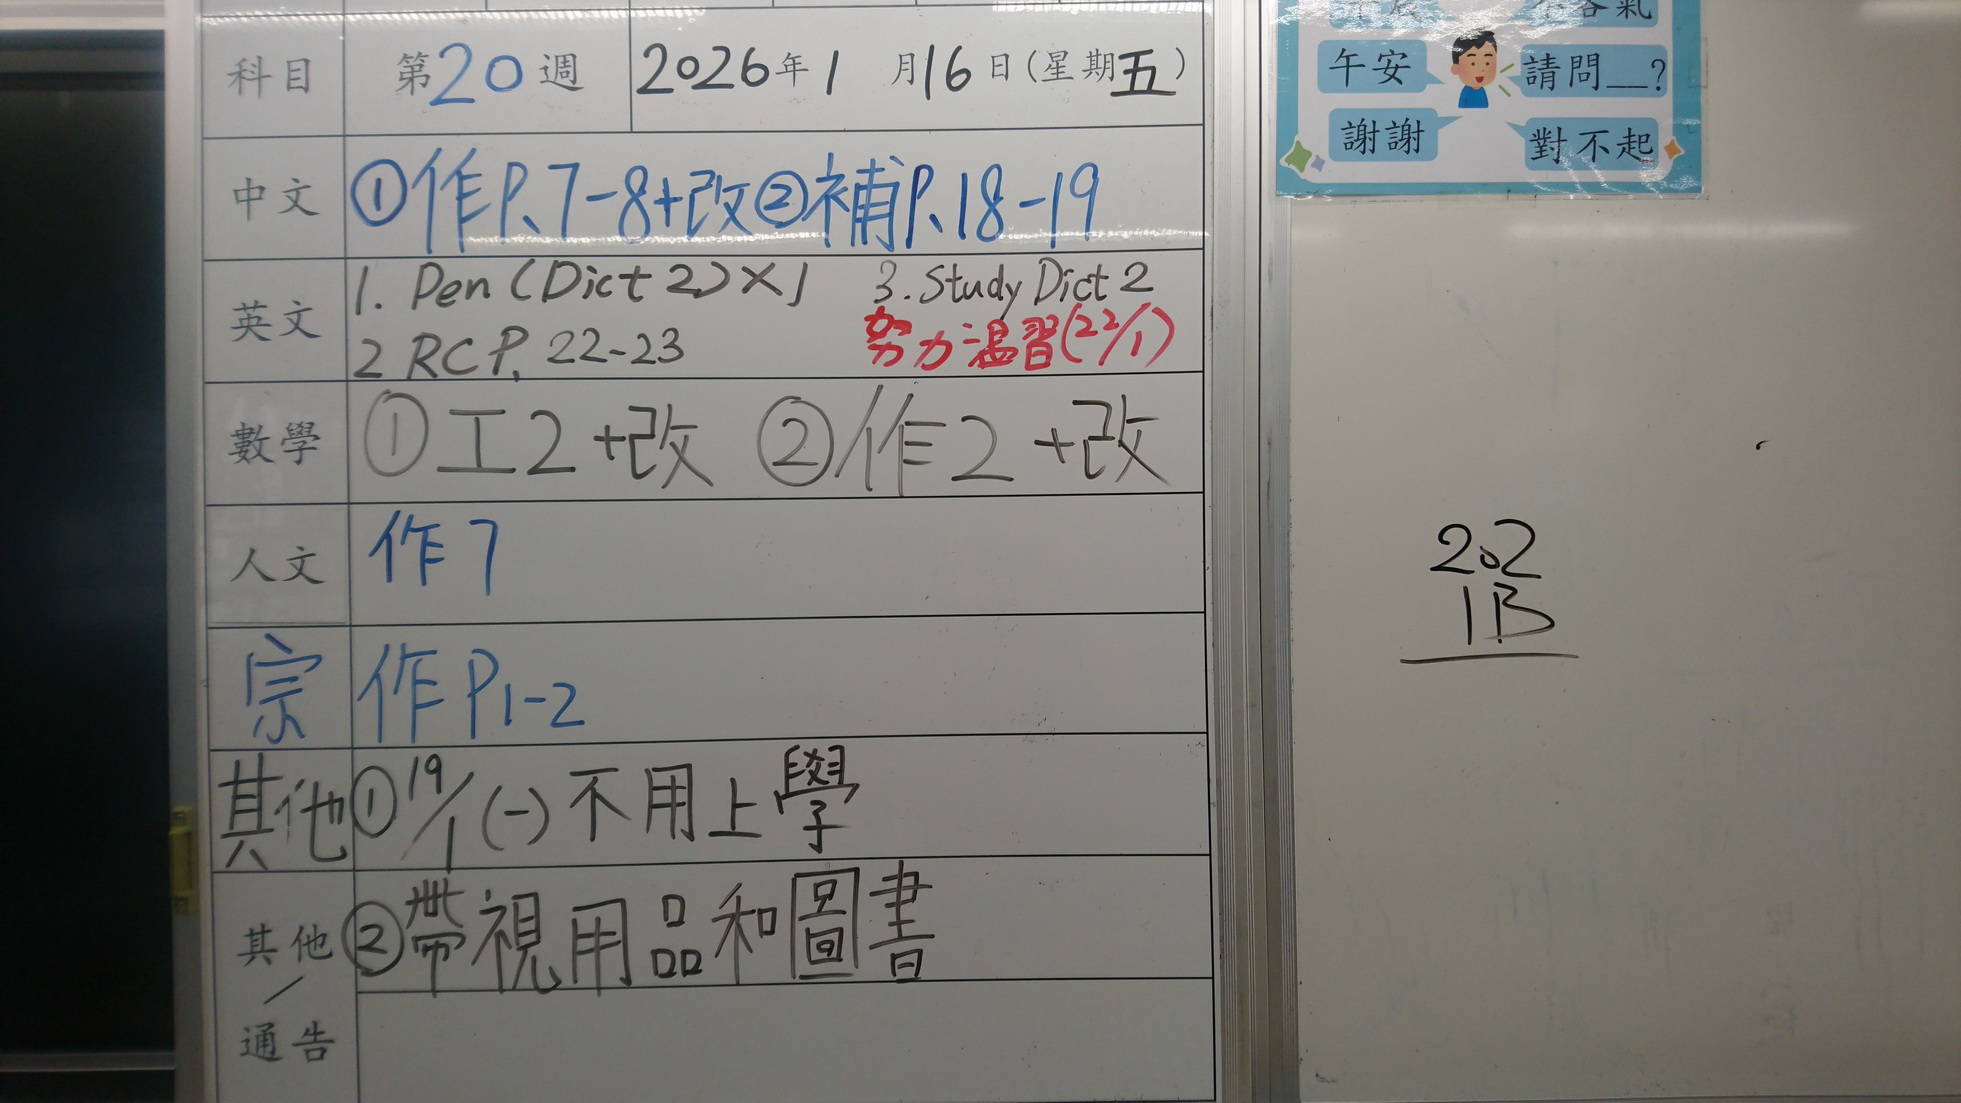 科目 第20週 2026年1月16日(星期五)
中文 ①作P.7-8+改②補P.18-19
英文 1. Pen (Dict 2)×1 3. Study Dict 2
2 RC P. 22-23 努力溫習(22/1)
數學 ①工2+改 ②作2+改
人文 作7
宗 作P1-2
其他 ①19/1(一)不用上學
其他/通告 ②帶視用品和圖書
客氣
午安 請問__?
謝謝 對不起
202
1B